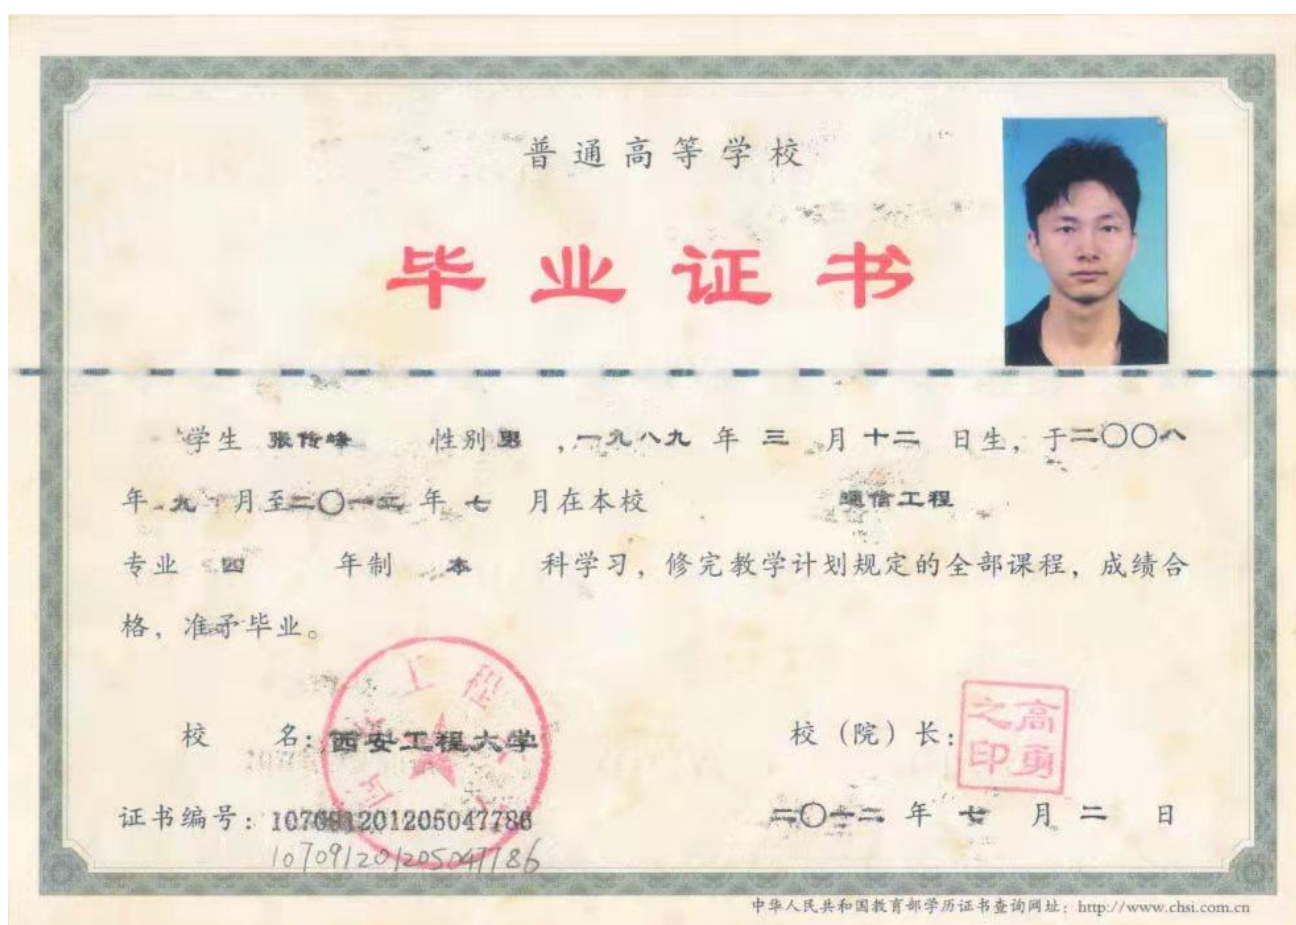 普通高等学校
毕业证书
学生 张传峰 性别 男 ,一九八九 年 三 月 十二 日生, 于二〇〇八
年 九 月至二〇一二 年 七 月在本校 通信工程
专业 四 年制 本 科学习, 修完教学计划规定的全部课程, 成绩合
格, 准予毕业。
校 名: 西安工程大学
校 (院) 长:
高勇之印
证书编号: 107091201205047786
二〇一二 年 七 月 二 日
107091201205047786
中华人民共和国教育部学历证书查询网址: http://www.chsi.com.cn